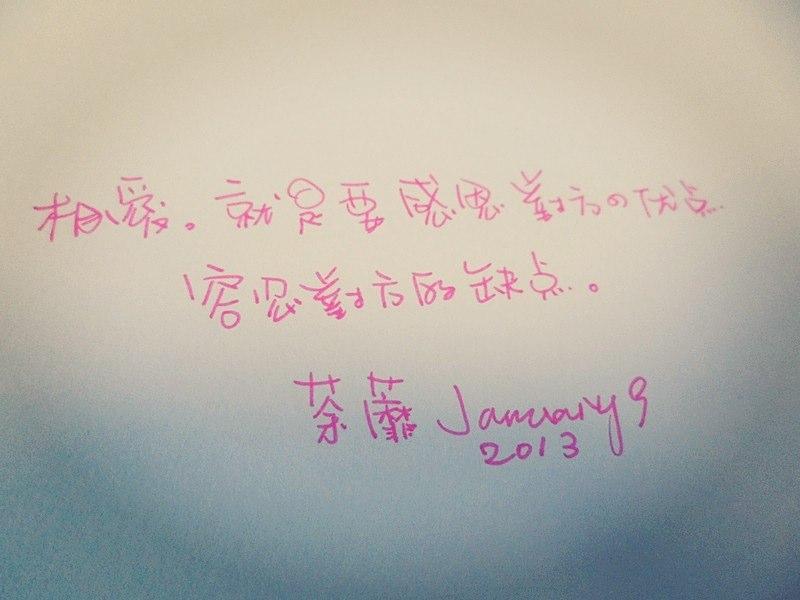 相愛。就是要感恩對方の优点
容忍對方的缺点。
荼蘼 January 9
2013